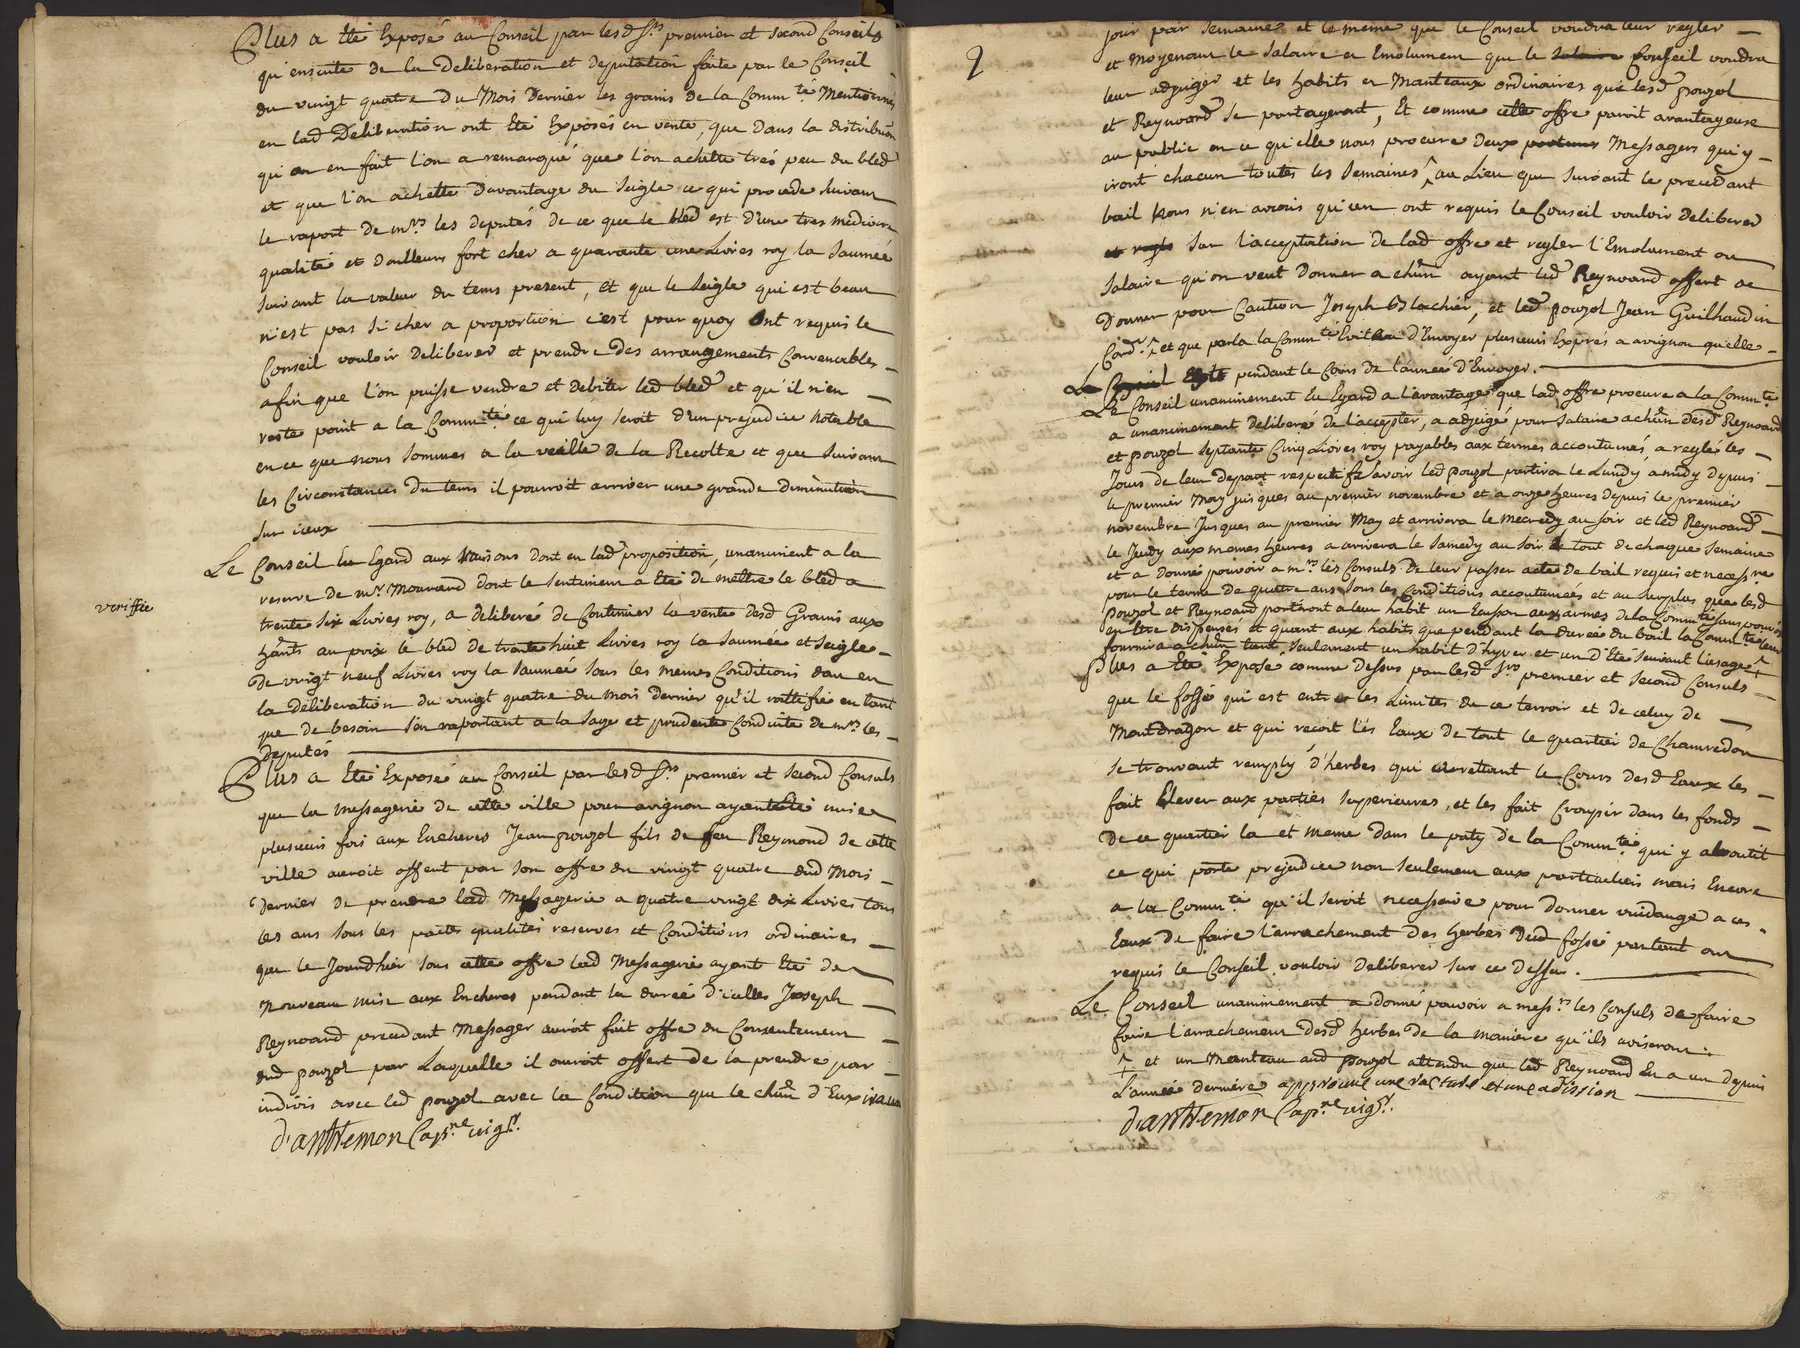 Plus a Eté Exposé au Conseil par lesd Srs premier et second Consuls
qu'ensuite de la Deliberation et deputation faite par le Conseil
du vingt quatre Du Mois Dernier les grains de la Commté Mentionnés
en lad Deliberation ont Eté Exposés en vente, que dans la distribuõn
qu'on en fait l'on a remarqué que l'on achette trés peu du bled
et que l'on achette Davantage du Seigle ce qui procede suivant
le raport de mrs les deputés de ce que le bled est d'une tres mediocre
qualité et dailleurs fort cher a quarante une Livres roy la Saumée
suivant la valeur du tems present, et que le Seigle qui est beau
n'est pas si cher a proportion c'est pourquoy Ont requis le
Conseil vouloir Deliberer et prendre Des arrangements Convenables
afin que l'on puisse vendre et debiter led bled et qu'il n'en
reste point a la Commté ce qui luy seroit d'un prejudice notable
en ce que nous sommes a la veille de la Recolte et que suivant
les Circonstances Du tems il pourroit arriver une grande Diminution
sur iceux
Le Conseil Eu Egard aux Raisons dont en lad proposition, unanimement a la
reserve de mr Mournard dont le sentiment a Eté de mettre le bled a
veriffié
trente six Livres roy, a deliberé de Continuer la vente desd Grains aux
hãnts au prix le bled de trente huit Livres roy la Saumée et Seigle
De vingt neuf Livres roy la Saumée sous les memes Conditions dont en
la deliberation du vingt quatre du mois dernier qu'il rattifie en tant
que de besoin s'en raportant a la sage et prudente Conduite de mrs les
deputés
Plus a Eté Exposé au Conseil par lesd Srs premier et second Consuls
que la messagerie de cette ville pour avignon ayant Eté mise
plusieurs fois aux Encheres Jean pouzol fils de feu Reymond de cette
ville auroit offert par son offre du vingt quatre dud Mois
Dernier de prendre lad Messagerie a quatre vingt dix Livres tous
les ans sous les pactes qualités reserves et Conditions ordinaires
que le Jourdhier sous cette offre lad Messagerie ayant Eté de
nouveau mise aux Encheres pendant la durée d'icelles Joseph
Reynoard precedant Messager auroit fait offre du Consentement
dud pouzol par Laquelle il auroit offert de la prendre par
indivis avec led pouzol avec la Condition que le chũn d'Eux iraun
d'anthemon Capne viigr.
2
jour par Semaine et le meme que le Conseil voudra leur regler
et Moyenant le Salaire et Emolument que le Conseil voudra
leur adjuger et les habits et Manteaux ordinaires que lesd pouzol
et Reynoard se partageront, Et comme cette offre paroit avantageuse
au public en ce qu'elle nous procure Deux Messagers qui y
iront chacun toutes les Semaines ^ au Lieu que suivant le precedant
bail Nous n'en avions qu'un ont requis le Conseil vouloir Deliberer
sur l'acceptation de lad offre et regler l'Emolument ou
Salaire qu'on veut Donner a chũn ayant led Reynoard offert de
Donner pour Caution Joseph Blachier, et led pouzol Jean Guilhaudin
Cordr. ^ et que parla la Commté Evitera d'Envoyer plusieurs Exprés a avignon qu'elle
pendant le Cours de l'année d'Envoyer.
Le Conseil unanimement Eu Egard a l'avantage que lad offre procure a la Commté
a unanimement deliberé de l'accepter, a adjugé pour Salaire a chũn Desd Reynoard
et pouzol Septante Cinq Livres roy payables aux termes accoutumés, a reglé les
Jours de leur Depart respectifs savoir led pouzol partira le Lundy a midy depuis
le premier May jusques au premier novembre et a onze heures Depuis le premier
novembre Jusques au premier May et arrivera le mecredy au soir et led Reynoard
le Jeudy aux memes heures a arrivera le samedy au soir le tout de chaque Semaine
et a donné pouvoir a mrs les Consuls De leur passer acte de bail requis et necessre
pour le terme de quatre ans sous les Conditions accoutumées et au surplus que lesd
pouzol et Reynoard portaront a leur habit un Ecusson aux armes de la Commté sans pouvoir
en Etre dispensés et quant aux habits que pendant la durée du bail la Commté leur
fournira a chũn tant seulement un habit d'hyver et un d'Eté suivant l'usage ^
Plus a Eté Exposé comme Dessus par lesd Srs premier et second Consuls
que le fossé qui est entre les Limites de ce terroir et de celuy de
Montdragon et qui recoit les Eaux de tout le quartier de Chamredon
se trouvant remply d'herbes qui arrettant le Cours desd Eaux les
fait Elever aux parties superieures, et les fait Croupir dans les fonds
De ce quartier là et meme dans le paty de la Commté qui y aboutit
ce qui porte prejudice non seulement aux particuliers mais Encore
a la Commté qu'il seroit necessaire pour donner vuidange a ces
Eaux De faire l'arrachement des herbes Dud fossé partant ont
requis le Conseil vouloir deliberer sur ce dessus.
Le Conseil unanimement a donné pouvoir a messrs les Consuls de faire
faire l'arrachement desd herbes de la maniere qu'ils aviseront.
^ et un Manteau aud pouzol attendu que led Reynoard En a un depuis
L'année derniere approuvé une rature et une adission
d'anthemon Capne viigr.